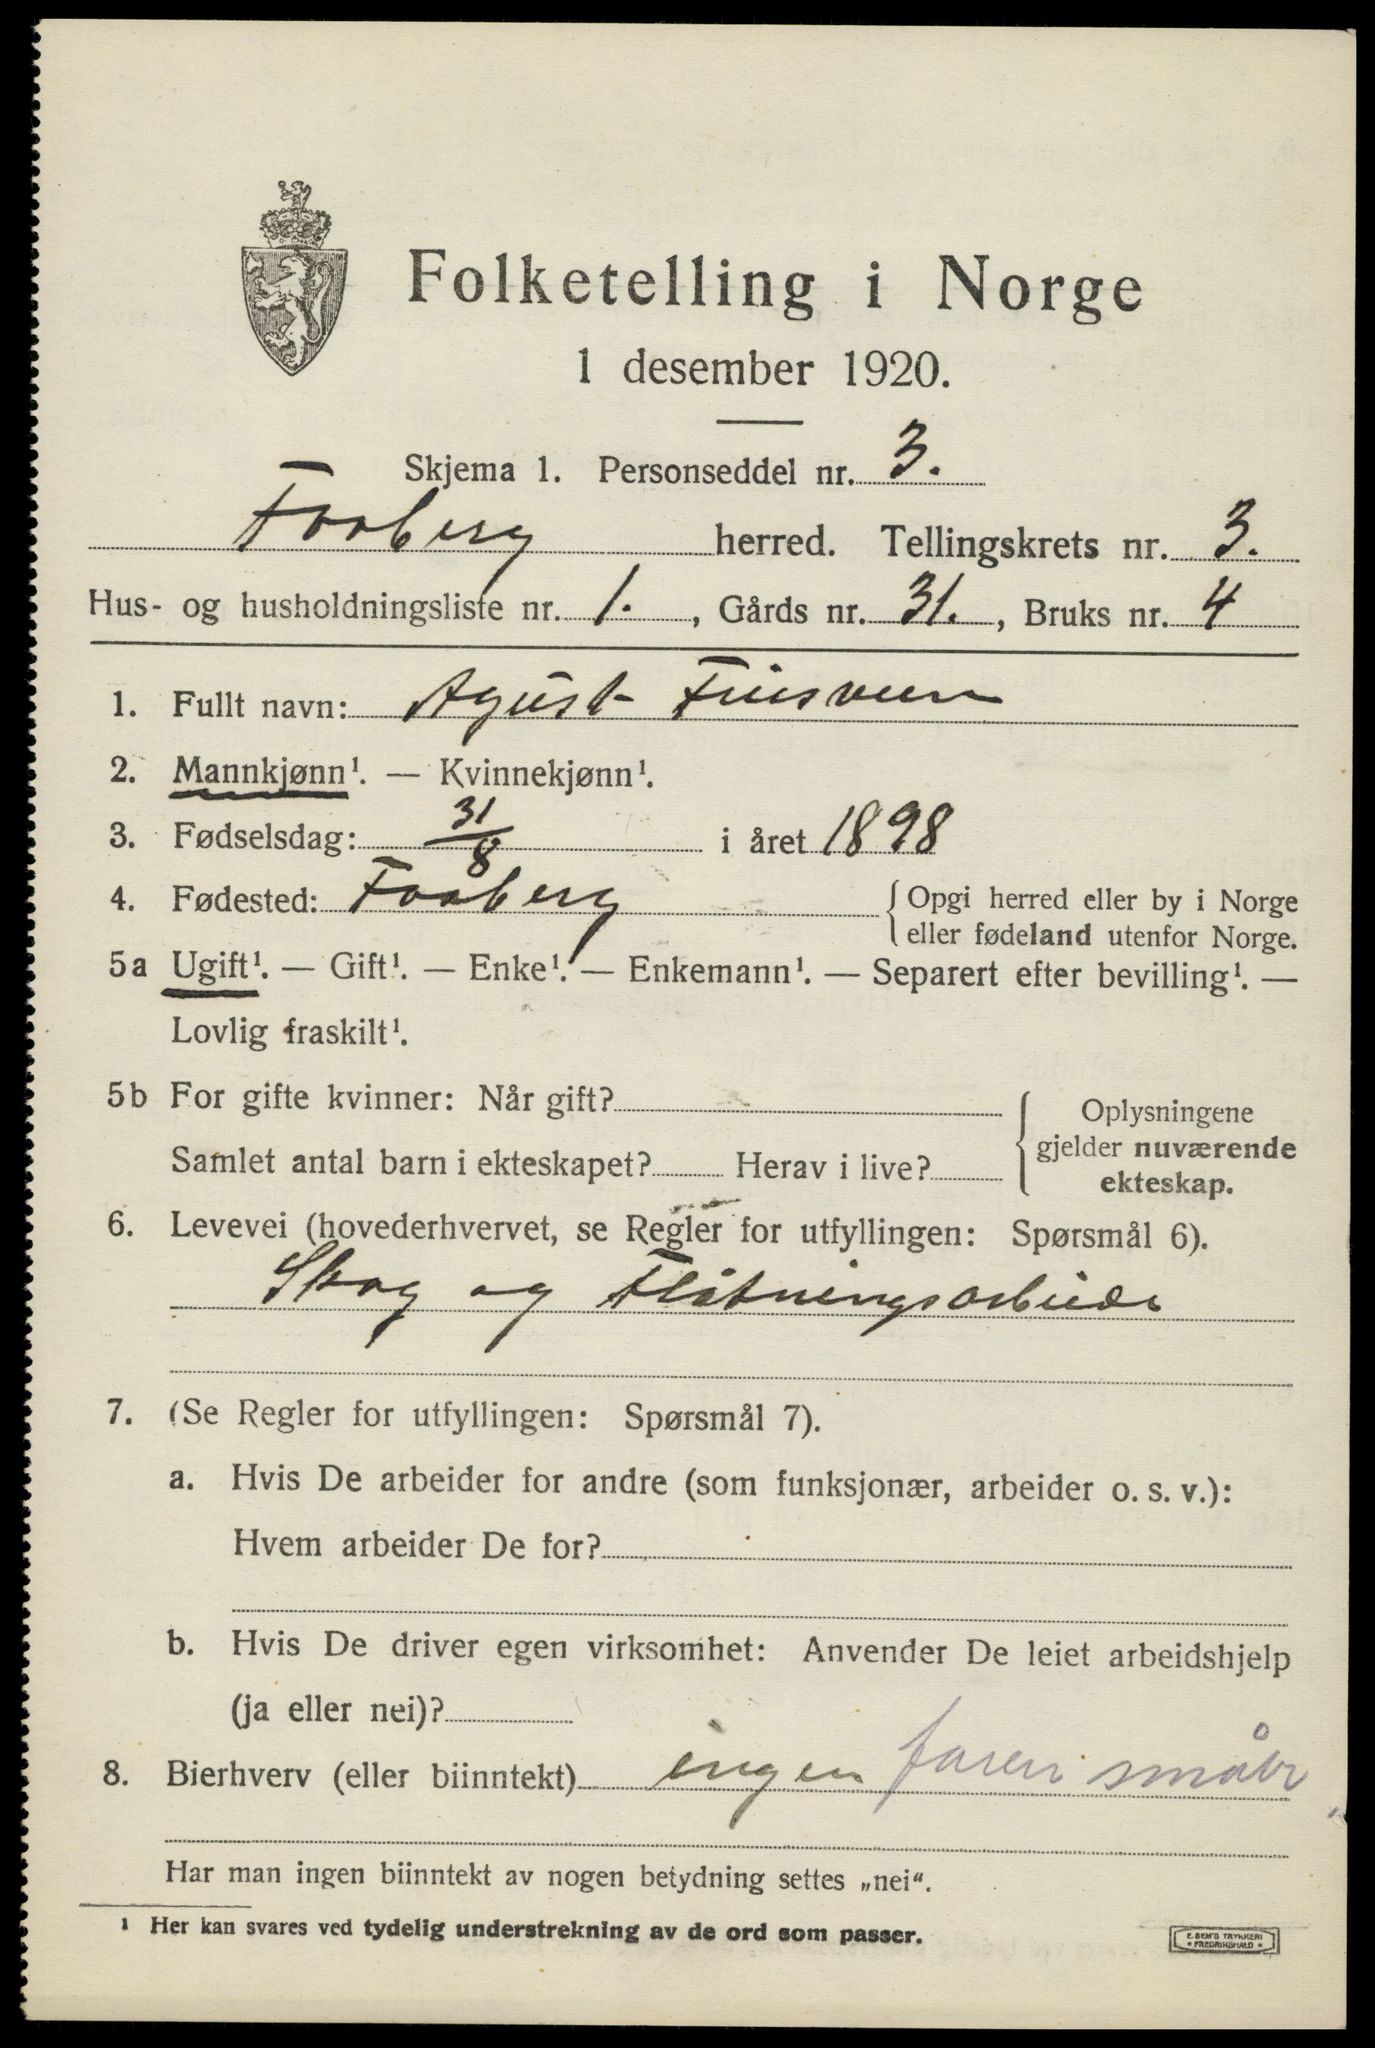 Folketelling i Norge
1 desember 1920.
Skjema 1. Personseddel nr. 3.
Faaberg herred. Tellingskrets nr. 3.
Hus- og husholdningsliste nr. 1. , Gårds nr. 31. , Bruks nr. 4
1. Fullt navn: Agust
2. Mannkjønn¹. — Kvinnekjønn¹.
3. Fødselsdag: 31/8 i året 1898
4. Fødested: Faaberg { Opgi herred eller by i Norge
eller fødeland utenfor Norge.
5a Ugift¹. — Gift¹. — Enke¹. — Enkemann¹. — Separert efter bevilling¹. —
Lovlig fraskilt¹.
5b For gifte kvinner: Når gift?
Samlet antal barn i ekteskapet? Herav i live?
{ Oplysningene
gjelder nuværende
ekteskap.
6. Levevei (hovederhvervet, se Regler for utfyllingen: Spørsmål 6).
Skog og Fløtningsarbeide
7. (Se Regler for utfyllingen: Spørsmål 7).
a. Hvis De arbeider for andre (som funksjonær, arbeider o. s. v.):
Hvem arbeider De for?
b. Hvis De driver egen virksomhet: Anvender De leiet arbeidshjelp
(ja eller nei)?
8. Bierhverv (eller biinntekt) ingen faren småbr
Har man ingen biinntekt av nogen betydning settes „nei“.
¹ Her kan svares ved tydelig understrekning av de ord som passer.
E. SEM'S TRYKKERI
* FREDRIKSHALD *